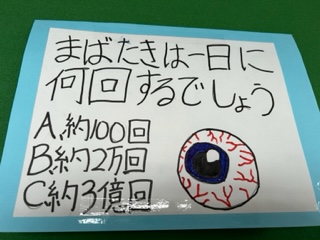 まばたきは一日に
何回するでしょう
A.約100回
B.約2万回
C.約3億回